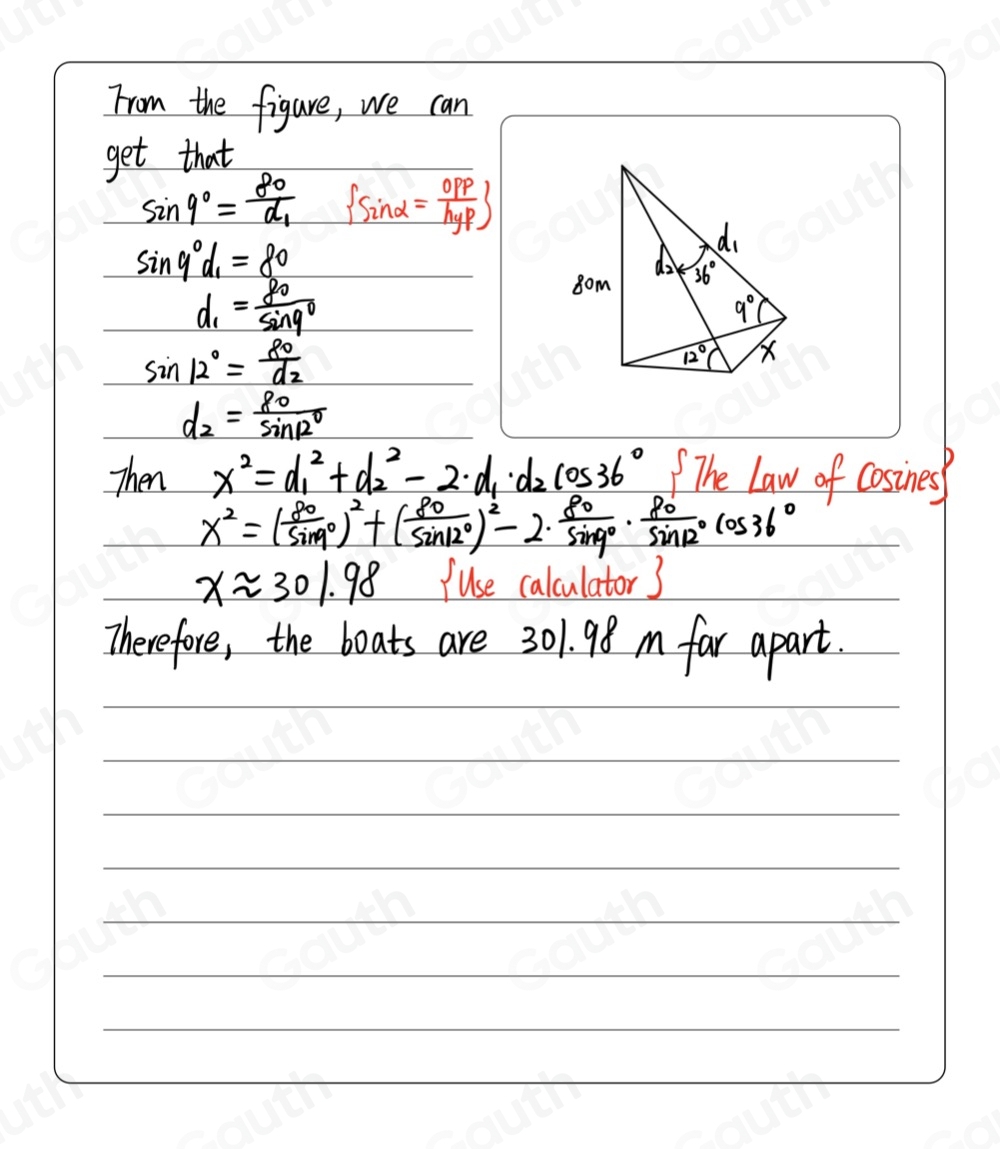 From the figure, we can
get that
sin 9° = 80/d₁ {sinα = opp/hyp}
sin 9° d₁ = 80
d₁ = 80/sin9°
sin 12° = 80/d₂
d₂ = 80/sin12°
80m
d₂
36°
d₁
9°
12°
x
Then x² = d₁² + d₂² - 2·d₁·d₂ cos36° {The Law of Cosines}
x² = (80/sin9°)² + (80/sin12°)² - 2·80/sin9°·80/sin12° cos36°
x ≈ 301.98 {Use calculator}
Therefore, the boats are 301.98 m far apart.
Gauth